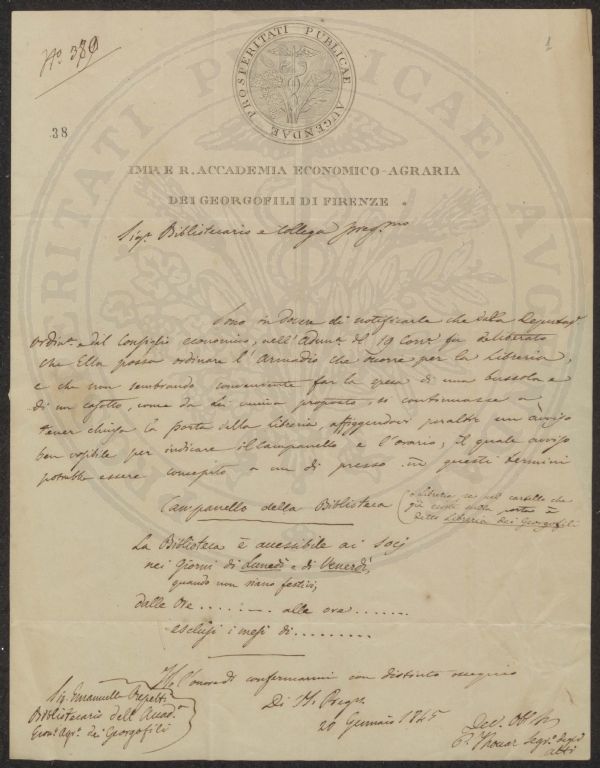 N.º 389
1
PROSPERITATI PUBLICAE AUGENDAE
38
IMP. E R. ACCADEMIA ECONOMICO-AGRARIA
DEI GEORGOFILI DI FIRENZE
Sig.r Bibliotecario e Collega preg.mo
Sono in dovere di notificarle che dalla Deputaz.
ordin. e dal Consiglio economico, nell' Adun. del 19 Corr. fu deliberato
che Ella possa ordinare l'Armadio che occorre per la Libreria,
e che non sembrando conveniente far la spesa di una bussola e
di un casotto, come da Lei veniva proposto, si continuasse a
tener chiusa la porta della Libreria, affiggendovi peraltro un avviso
ben visibile per indicare il Campanello e l'orario; il quale avviso
potrebbe essere concepito a un di presso in questi termini
Campanello della Biblioteca
(o Libreria, se nel cartello che
già esiste sulla porta è
detto Libreria dei Georgofili
La Biblioteca è accessibile ai Socj
nei Giorni di Lunedì e di Venerdì,
quando non siano festivi,
dalle ore ......... alle ore .......
esclusi i mesi di .........
Ho l'onore di confermarmi con distinto ossequio
Di VS. Preg.
20 Gennaio 1845
Sig. Emanuelle Repetti
Bibliotecario dell'Accad.
Econ. Agr. dei Georgofili
Dev.
P. Thouar Segr. degli
atti